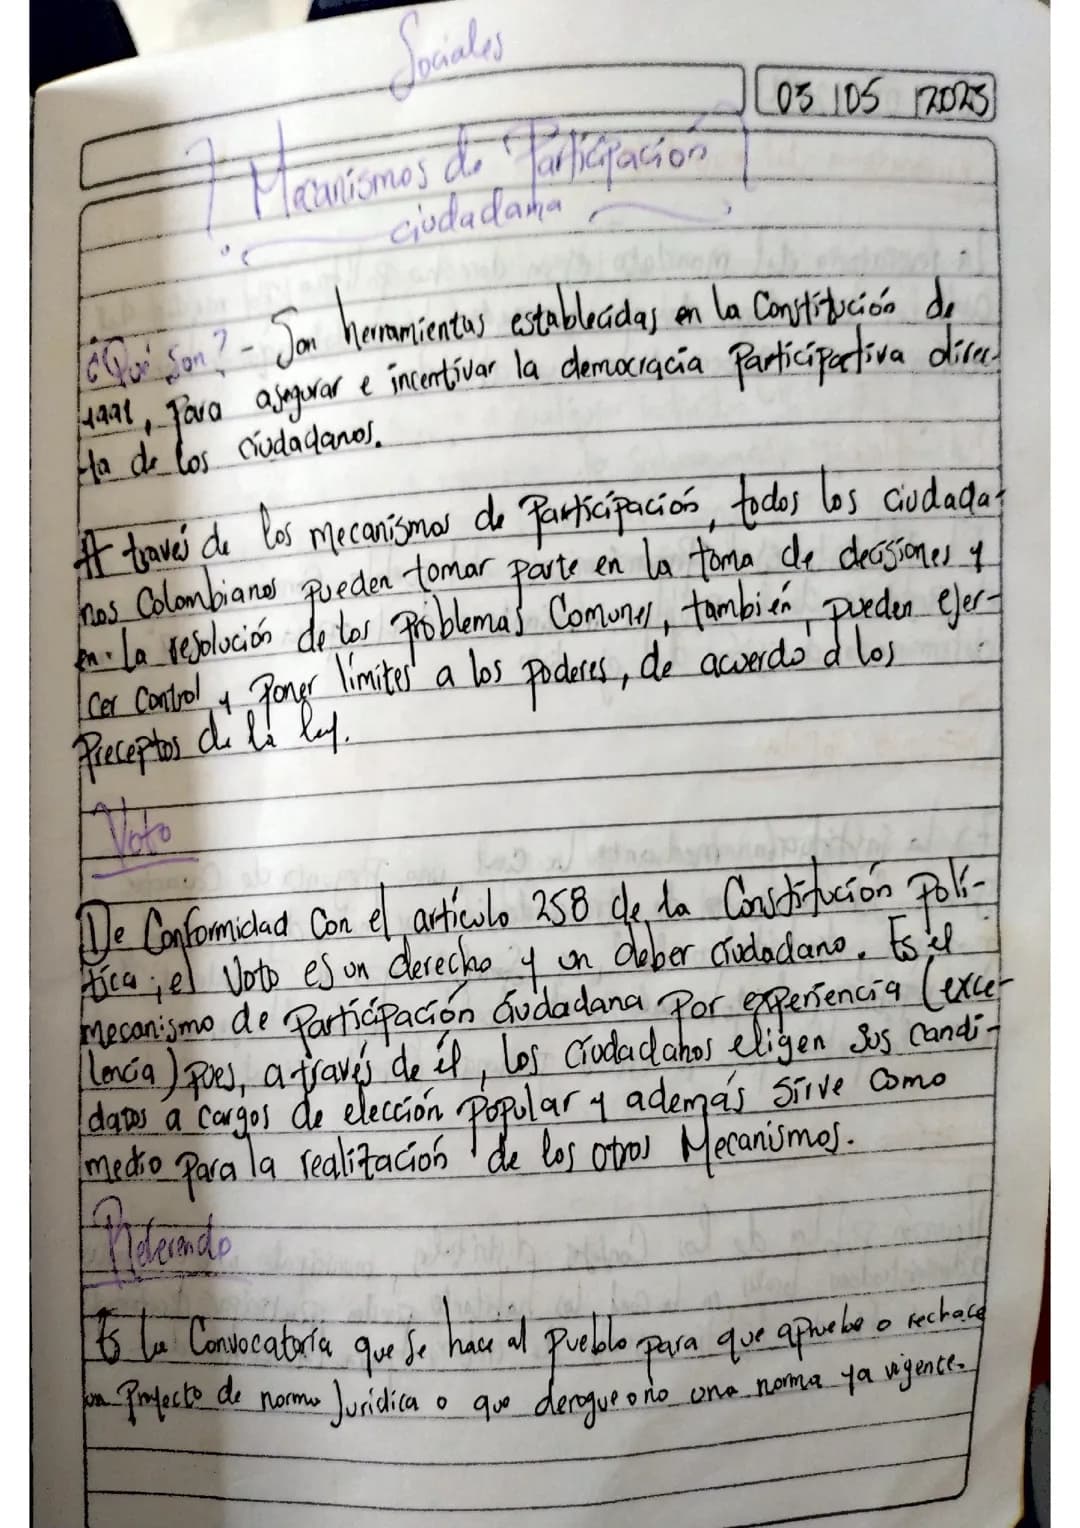 Sociales
03 105 2023
Mecanismos de Participación
ciudadana
¿Qué Son? - Son herramientas establecidas en la Constitución de
1991, Para asegurar e incentivar la democracia Participativa direc-
ta de los ciudadanos.
A través de los mecanismos de Participación, todos los ciudada-
nos Colombianos pueden tomar parte en la toma de decisiones y
en la resolución de los Problemas Comunes, también pueden ejer-
cer Control y Poner límites a los poderes, de acuerdo a los
Preceptos de la ley.
Voto
De Conformidad Con el artículo 258 de la Constitución Polí-
tica, el Voto es un derecho y un deber ciudadano. Es el
mecanismo de Participación ciudadana Por experiencia (exce-
lencia) pues, a través de él, los Ciudadanos eligen sus candi-
datos a Cargos de elección Popular y además sirve Como
medio Para la realización de los otros Mecanismos.
Referendo
Es la Convocatoria que se hace al pueblo para que apruebe o rechace
un Proyecto de norma Jurídica o que derogue o no una norma ya vigente.